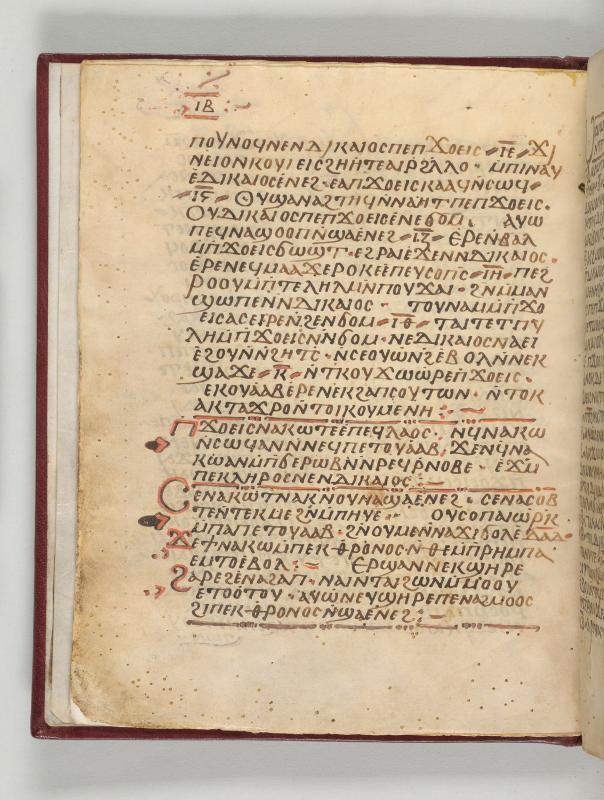 ⲓⲃ
ⲡⲟⲩⲛⲟϥⲛⲉⲛⲇⲓⲕⲁⲓⲟⲥⲡⲉⲡϫⲟⲉⲓⲥ ⲓⲉ ϫⲓ
ⲛⲉⲓⲟⲛⲕⲟⲩⲓⲉⲓⲥϩⲏⲏⲧⲉⲁⲓⲣϩⲗⲗⲟ · ⲙⲡⲓⲛⲁⲩ
ⲉⲇⲓⲕⲁⲓⲟⲥⲉⲛⲉϩ · ⲉⲁⲡϫⲟⲉⲓⲥⲕⲁⲁϥⲛⲥⲱϥ
ⲓⲋ ⲟⲩϣⲁⲛⲁϩⲧⲏϥⲛⲛⲁⲏⲧⲡⲉⲡϫⲟⲉⲓⲥ ·
ⲟⲩⲇⲓⲕⲁⲓⲟⲥⲡⲉⲡϫⲟⲉⲓⲥⲉⲛⲉϭⲟⲙ · ⲁⲩⲱ
ⲡⲉϥⲛⲁϣⲱⲡⲛϣⲁⲉⲛⲉϩ ⲓⲍ ⲉⲣⲉⲛⲃⲁⲗ
ⲙⲡϫⲟⲉⲓⲥϭⲱϣⲧ · ⲉϩⲣⲁⲓⲉϫⲉⲛⲛⲇⲓⲕⲁⲓⲟⲥ ·
ⲉⲣⲉⲛⲉϥⲙⲁⲁϫⲉⲣⲟⲕⲉⲡⲉⲩⲥⲟⲡⲥ ⲓⲏ ⲡⲉϩ
ⲣⲟⲟⲩⲙⲡⲧⲉⲗⲏⲗⲙⲛⲡⲟⲩϫⲁⲓ · ϩⲛⲙⲙⲁⲛ
ϣⲱⲡⲉⲛⲛⲇⲓⲕⲁⲓⲟⲥ · ⲧⲟⲩⲛⲁⲙⲙⲡϫⲟ
ⲉⲓⲥⲁⲥⲉⲓⲣⲉⲛϩⲉⲛϭⲟⲙ ⲓⲑ ⲧⲁⲓⲧⲉⲧⲡⲩ
ⲗⲏⲙⲡϫⲟⲉⲓⲥⲛⲛϭⲟⲙ · ⲛⲉⲇⲓⲕⲁⲓⲟⲥⲛⲁⲉⲓ
ⲉϩⲟⲩⲛⲛϩⲏⲧⲥ · ⲛⲥⲉⲟⲩⲱⲛϩⲉⲃⲟⲗⲛⲛⲉⲕ
ϣⲁϫⲉ ⲕ ⲛⲧⲕⲟⲩϫⲱⲱⲣⲉⲡϫⲟⲉⲓⲥ ·
ⲉⲕⲟⲩⲁⲁⲃⲉⲣⲉⲛⲉⲕϩⲁⲡⲥⲟⲩⲧⲱⲛ · ⲛⲧⲟⲕ
ⲁⲕⲧⲁϫⲣⲟⲛⲧⲟⲓⲕⲟⲩⲙⲉⲛⲏ :
ⲡϫⲟⲉⲓⲥⲛⲁⲕⲱⲧⲉⲉⲡⲉϥⲗⲁⲟⲥ · ⲛϥⲛⲁⲕⲱ
ⲛⲥⲱϥⲁⲛⲛⲛⲉϥⲡⲉⲧⲟⲩⲁⲁⲃ, ϫⲉⲛϥⲛⲁ
ⲕⲱⲁⲛⲙⲡϭⲉⲣⲱⲃⲛⲛⲣⲉϥⲣⲛⲟⲃⲉ · ⲉϫⲙ
ⲡⲉⲕⲗⲏⲣⲟⲥⲛⲉⲛⲇⲓⲕⲁⲓⲟⲥ :
ⲥⲉⲛⲁⲕⲱⲧⲛⲁⲕⲛⲟⲩⲛⲁϣⲁⲉⲛⲉϩ · ⲥⲉⲛⲁⲥⲟⲃ
ⲧⲉⲛⲧⲉⲕⲙⲉϩⲛⲙⲡⲏⲩⲉ · ⲟⲩⲥⲟⲡⲁⲓⲱⲣⲕ
ⲙⲡⲁⲡⲉⲧⲟⲩⲁⲁⲃ · ϩⲛⲟⲩⲙⲉⲛⲛⲁϫⲓϭⲟⲗⲉⲇⲁⲁ
ϫⲉϯⲛⲁⲕⲱⲙⲡⲉⲕⲑⲣⲟⲛⲟⲥ · ⲛⲑⲉⲙⲡⲣⲏⲙⲡⲁ
ⲉⲙⲧⲟⲉⲃⲟⲗ : ⲉⲣϣⲁⲛⲛⲉⲕϣⲏⲣⲉ
ϩⲁⲣⲉϩⲉⲛⲁϩⲁⲡ · ⲛⲁⲓⲛⲧⲁⲓϩⲱⲛⲙⲙⲟⲟⲩ
ⲉⲧⲟⲟⲧⲟⲩ · ⲁⲩⲱⲛⲉⲩϣⲏⲣⲉⲡⲉⲛⲁϩⲙⲟⲟⲥ
ϩⲓⲡⲉⲕⲑⲣⲟⲛⲟⲥⲛϣⲁⲉⲛⲉϩ :